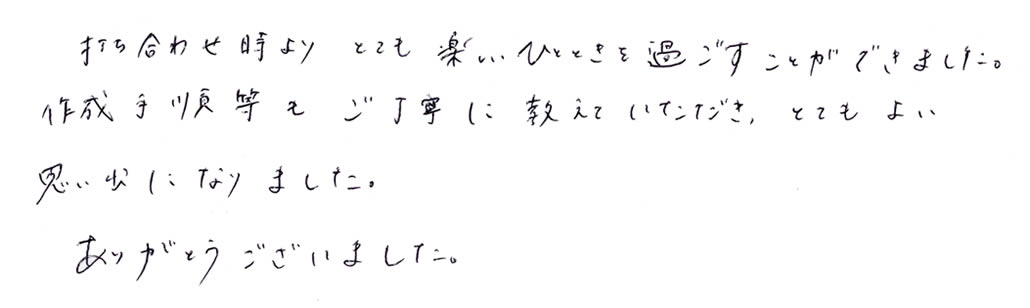 打ち合わせ時より とても 楽しいひとときを過ごすことができました。
作成手順等も ご丁寧に 教えていただき、とてもよい
思い出になりました。
ありがとうございました。